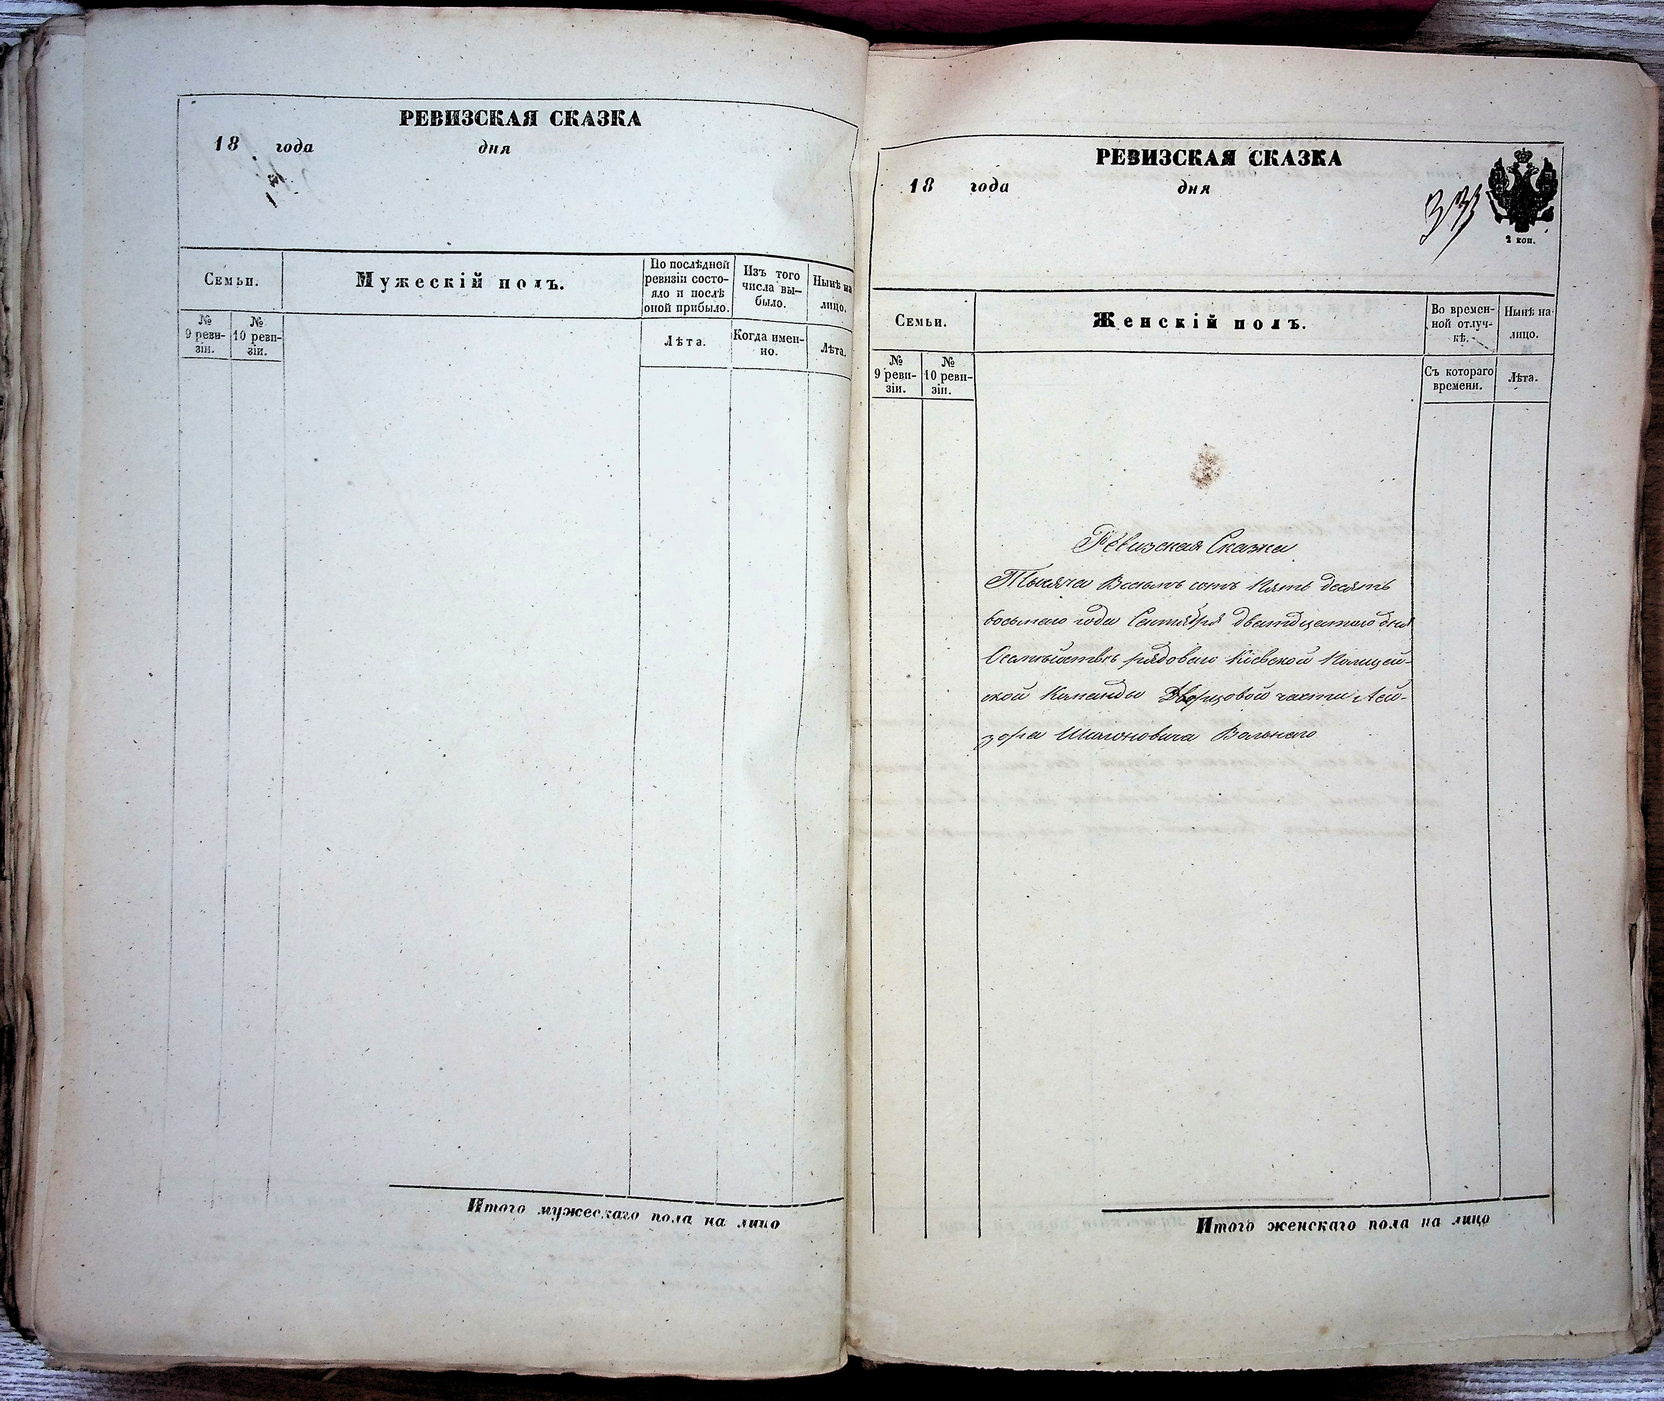 РЕВИЗСКАЯ СКАЗКА
18 года дня
Семьи.
Мужескій полъ.
По послѣдней ревизіи состояло и послѣ оной прибыло.
Изъ того числа выбыло.
Нынѣ на лицо.
№ 9 ревизіи.
№ 10 ревизіи.
Лѣта.
Когда именно.
Лѣта.
Итого мужескаго пола на лицо
РЕВИЗСКАЯ СКАЗКА
18 года дня
2 коп.
Семьи.
Женскій полъ.
Во временной отлучкѣ.
Нынѣ на лицо.
№ 9 ревизіи.
№ 10 ревизіи.
Съ котораго времени.
Лѣта.
Ревизская Сказка
Тысяча Восемь сотъ Пять десятъ
восьмаго года Сентября двадцатаго дня
О семѣйствѣ рядоваго Кіевской Полицей-
ской Команды Дворцовой части Лей-
зора Шлиомовича Вольнаго
Итого женскаго пола на лицо